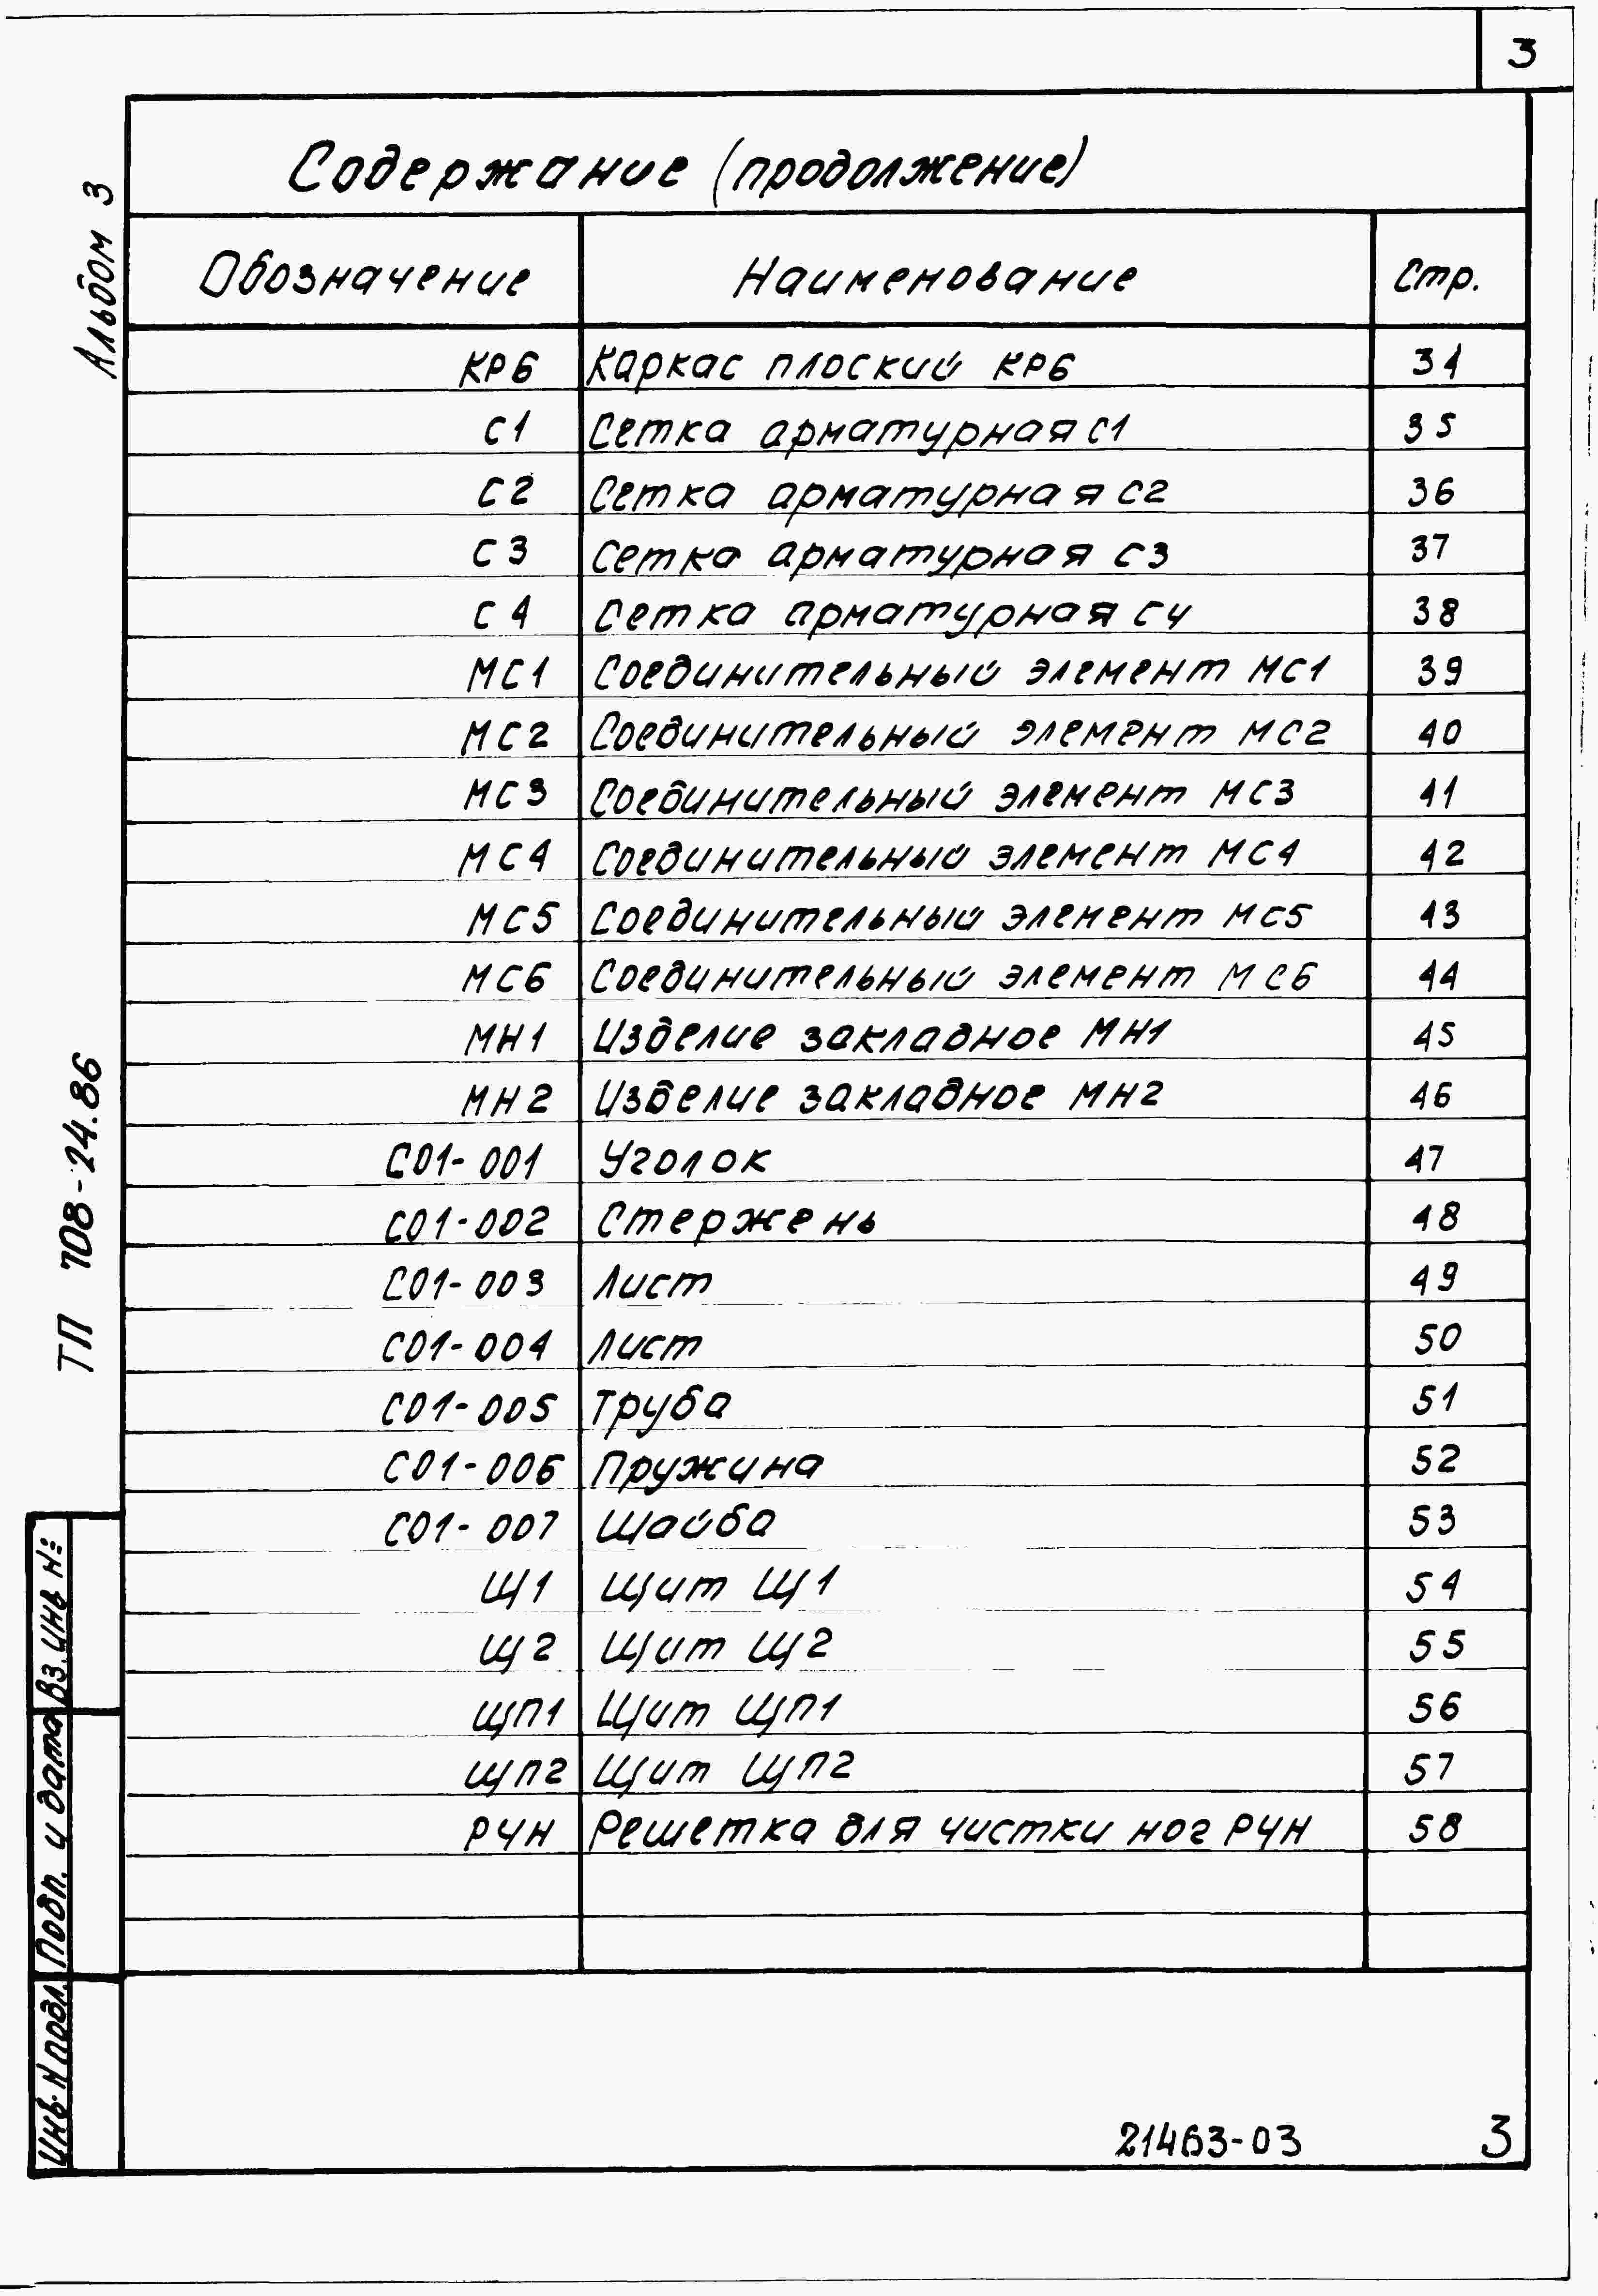 3
Содержание (продолжение)
Обозначение Наименование Стр.
КР6 Каркас плоский КР6 34
С1 Сетка арматурная С1 35
С2 Сетка арматурная С2 36
С3 Сетка арматурная С3 37
С4 Сетка арматурная С4 38
МС1 Соединительный элемент МС1 39
МС2 Соединительный элемент МС2 40
МС3 Соединительный элемент МС3 41
МС4 Соединительный элемент МС4 42
МС5 Соединительный элемент МС5 43
МС6 Соединительный элемент МС6 44
МН1 Изделие закладное МН1 45
МН2 Изделие закладное МН2 46
С01-001 Уголок 47
С01-002 Стержень 48
С01-003 Лист 49
С01-004 Лист 50
С01-005 Труба 51
С01-006 Пружина 52
С01-007 Шайба 53
Щ1 Щит Щ1 54
Щ2 Щит Щ2 55
ЩП1 Щит ЩП1 56
ЩП2 Щит ЩП2 57
РЧН Решетка для чистки ног РЧН 58
21463-03 3
Альбом 3
ТП 708-24.86
Вз. инв №
Подп. и дата
Инв. N подл.